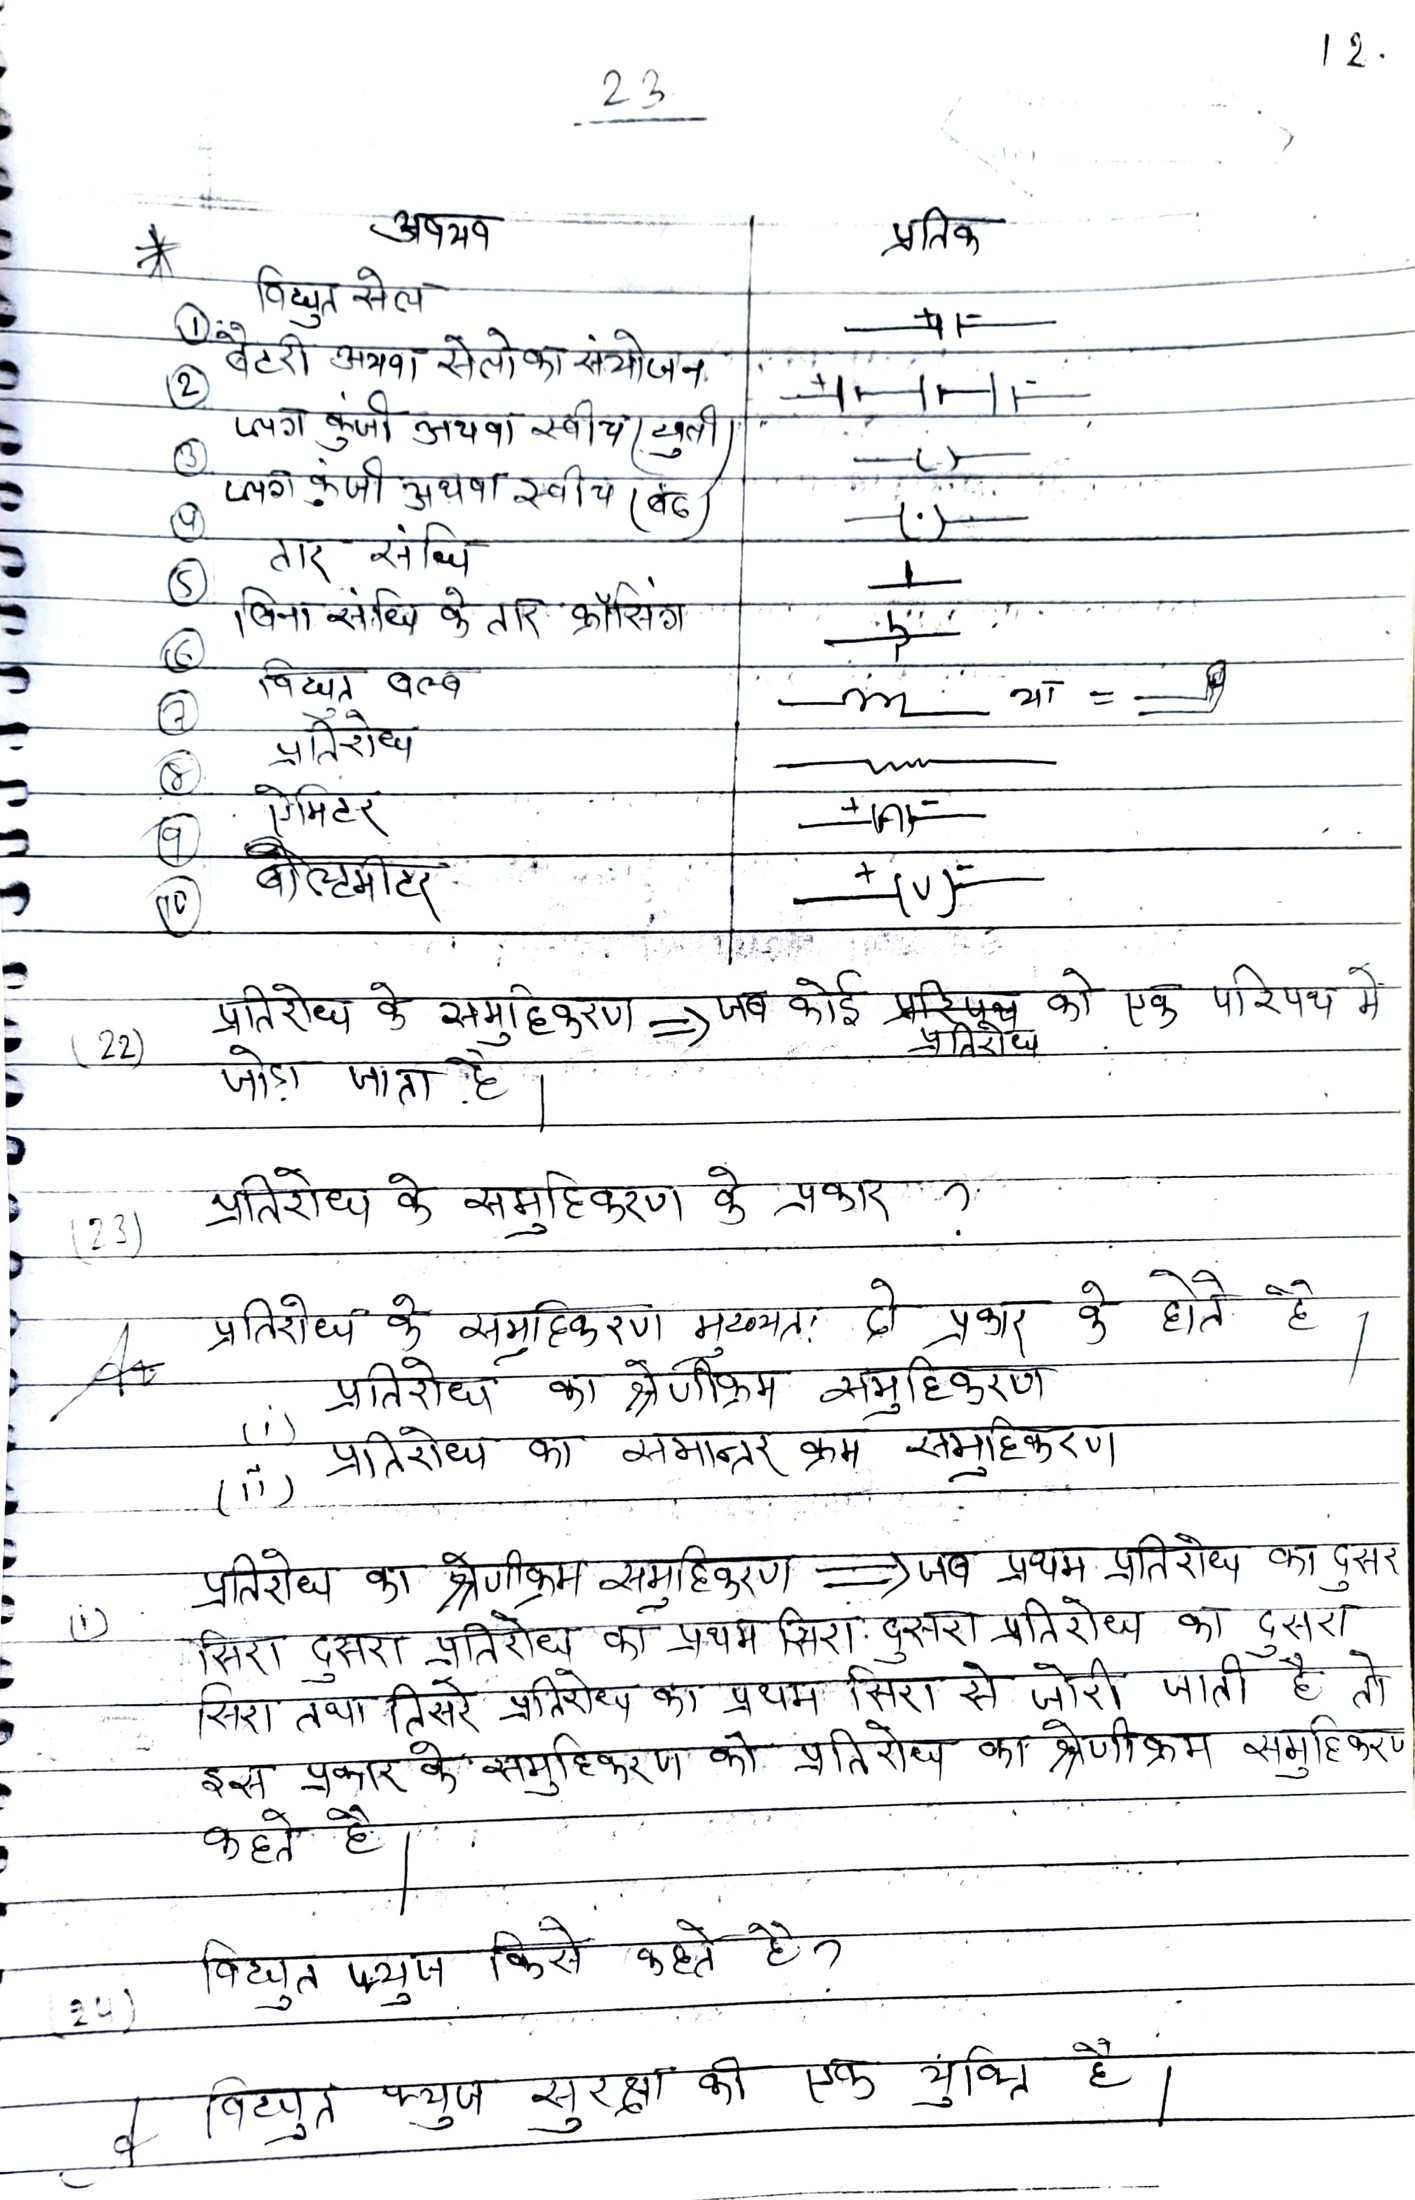 12.
23
* अवयव प्रतिक
① विद्युत सेल
② बैटरी अथवा सेलो का संयोजन + -
③ प्लग कुंजी अथवा स्वीच (खुली) ( )
④ प्लग कुंजी अथवा स्वीच (बंद) (.)
⑤ तार संधि
⑥ बिना संधि के तार क्रॉसिंग
⑦ विद्युत बल्ब या =
⑧ प्रतिरोध
⑨ ऐमिटर + (A) -
⑩ वोल्टमीटर + (V) -
(22) प्रतिरोध के समुहिकरण ⇒ जब कोई प्रतिरोध को एक परिपथ में
जोड़ा जाता है |
(23) प्रतिरोध के समुहिकरण के प्रकार ?
प्रतिरोध के समुहिकरण मुख्यतः दो प्रकार के होते है |
(i) प्रतिरोध का श्रेणीक्रम समुहिकरण
(ii) प्रतिरोध का समान्तर क्रम समुहिकरण
(i) प्रतिरोध का श्रेणीक्रम समुहिकरण ⇒ जब प्रथम प्रतिरोध का दुसर
सिरा दुसरा प्रतिरोध का प्रथम सिरा दुसरा प्रतिरोध का दुसरा
सिरा तथा तिसरे प्रतिरोध का प्रथम सिरा से जोरी जाती है तो
इस प्रकार के समुहिकरण को प्रतिरोध का श्रेणीक्रम समुहिकरण
कहते है |
(24) विद्युत फ्युज किसे कहते है ?
विद्युत फ्युज सुरक्षा की एक युक्ति है |